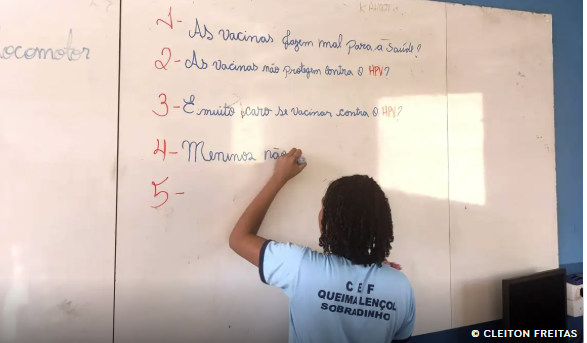 ocomotor
1- As vacinas fazem mal para à Saúde?
2- As vacinas não protegem contra o HPV?
3- É muito caro se vacinar contra o HPV?
4- Meninos não
5-
C E F
QUEIMALENÇOL
SOBRADINHO
© CLEITON FREITAS